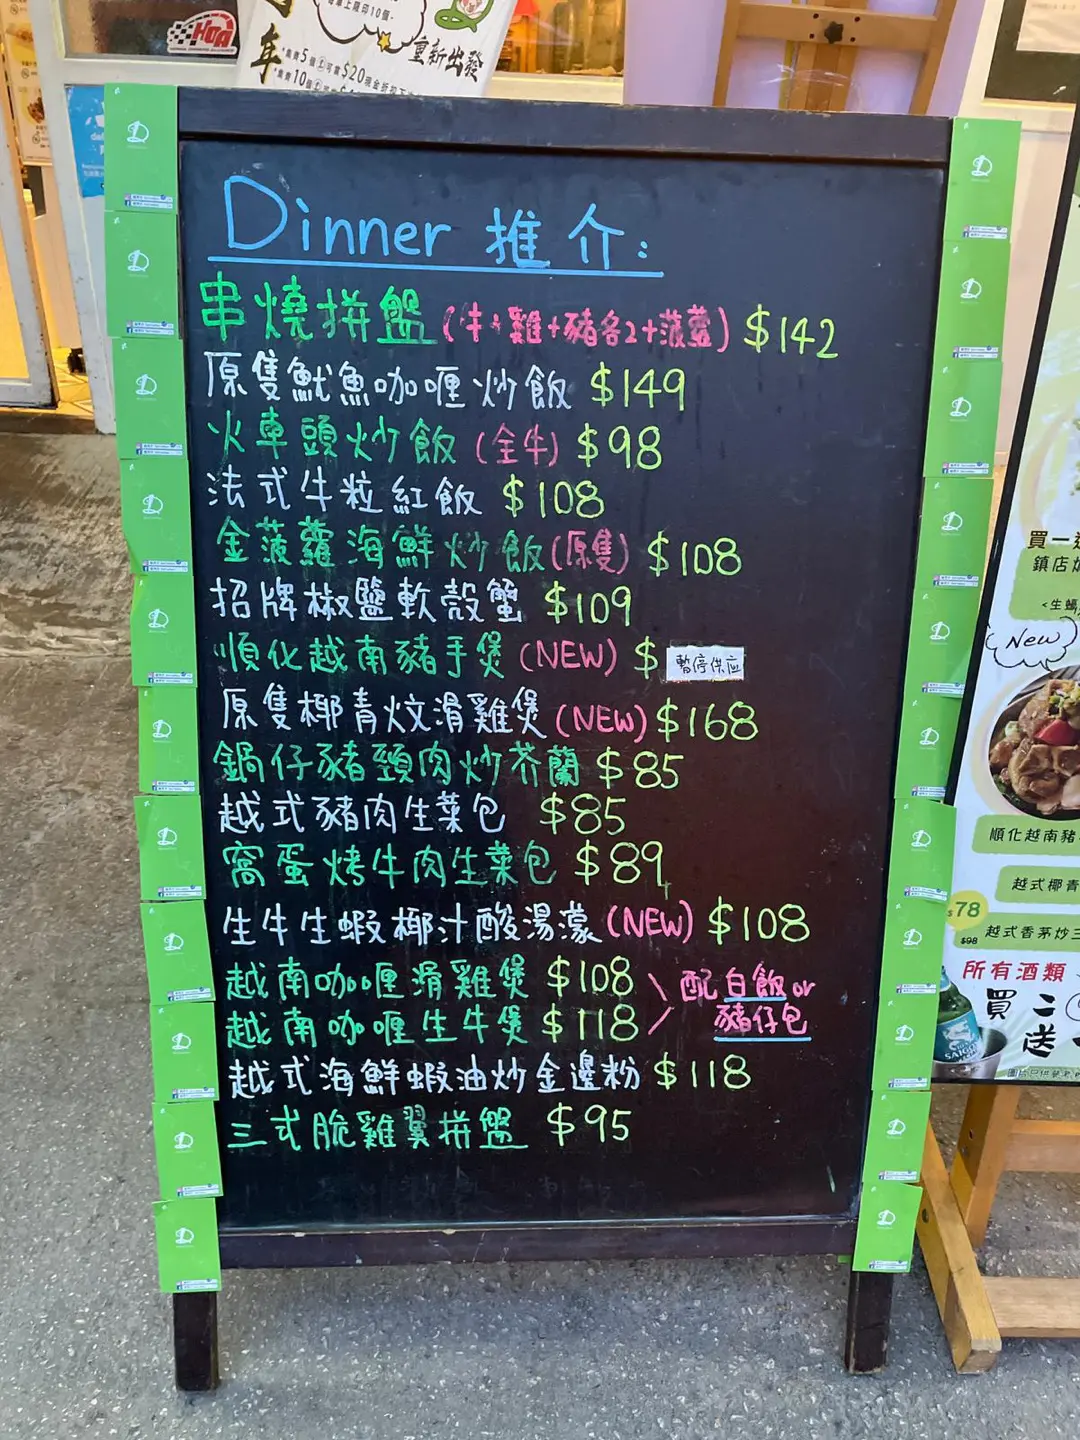 HOA
年
重新出發
Dinner 推介:
串燒拼盤(牛+雞+豬各2+菠蘿) $142
原隻魷魚咖喱炒飯 $149
火車頭炒飯(全牛) $98
法式牛粒紅飯 $108
金菠蘿海鮮炒飯(原隻) $108
招牌椒鹽軟殼蟹 $109
順化越南豬手煲(NEW) $ 暫停供应
原隻椰青炆滑雞煲(NEW) $168
鍋仔豬頸肉炒芥蘭 $85
越式豬肉生菜包 $85
窩蛋烤牛肉生菜包 $89
生牛生蝦椰汁酸湯濛(NEW) $108
越南咖喱滑雞煲 $108
越南咖喱生牛煲 $118
配白飯or
豬仔包
越式海鮮蝦油炒金邊粉 $118
三式脆雞翼拼盤 $95
買一送
鎮店
<生蠔
New
順化越南豬
越式椰青
$78
$98
越式香茅炒三
所有酒類
買二
送一